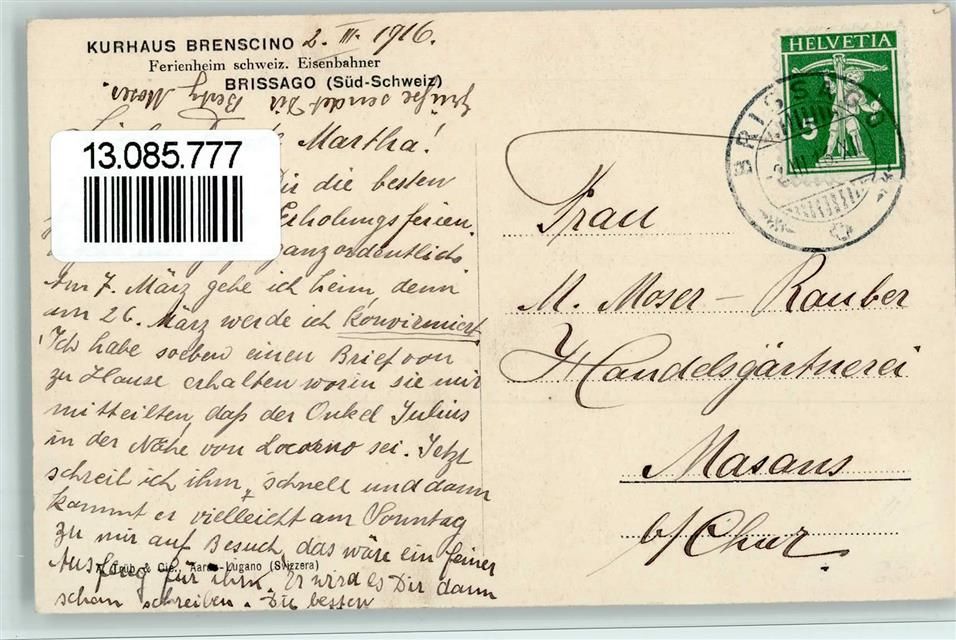 KURHAUS BRENSCINO 2. III. 1916.
Ferienheim schweiz. Eisenbahner
BRISSAGO (Süd-Schweiz)
Grüsse sendet Dir Berty Moser.
Martha!
13.085.777
Dir die besten
Erholungsferien.
ganz ordentlich
Am 7. März gehe ich heim denn
am 26. März werde ich konvirmiert.
Ich habe soeben einen Brief von
zu Hause erhalten worin sie mir
mitteilten, daß der Onkel Julius
in der Nähe von Locarno sei. Jetzt
schreib ich ihm schnell und dann
kommt er vielleicht am Sonntag
zu mir auf Besuch, das wäre ein feiner
Ausflug für ihn. Er wird es Dir dann
schon schreiben. Die besten
& Cie., Aarau-Lugano (Svizzera)
HELVETIA
5
BRISSAGO
Frau
M. Moser - Rauber
Handelsgärtnerei
Masans
b/ Chur.